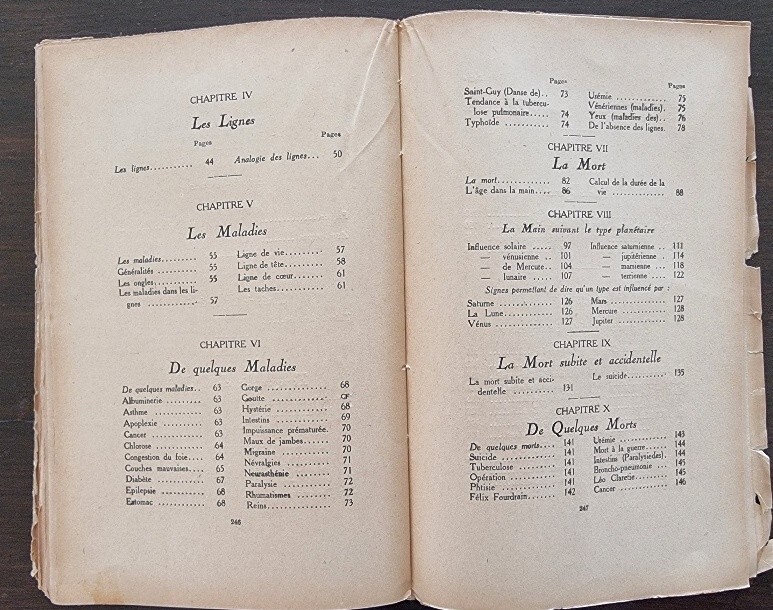 CHAPITRE IV
Les Lignes
Pages
Les lignes........... 44
Pages
Analogie des lignes... 50
CHAPITRE V
Les Maladies
Les maladies.......... 55
Généralités .......... 55
Les ongles............ 55
Les maladies dans les li-
gnes ............... 57
Ligne de vie......... 57
Ligne de tête........ 58
Ligne de cœur........ 61
Les taches........... 61
CHAPITRE VI
De quelques Maladies
De quelques maladies.. 63
Albuminerie .......... 63
Asthme ............... 63
Apoplexie ............ 63
Cancer ............... 63
Chlorose ............. 64
Congestion du foie.... 64
Couches mauvaises..... 65
Diabète .............. 67
Epilepsie ............ 68
Estomac .............. 68
Gorge ................ 68
Goutte ...............
Hystérie ............. 68
Intestins ............ 69
Impuissance prématurée. 70
Maux de jambes....... 70
Migraine ............. 70
Névralgies ........... 71
Neurasthénie ......... 71
Paralysie ............ 72
Rhumatismes .......... 72
Reins................. 73
246
Pages
Saint-Guy (Danse de).. 73
Tendance à la tubercu-
lose pulmonaire..... 74
Typhoïde ............. 74
Pages
Urémie ............... 75
Vénériennes (maladies). 75
Yeux (maladies des).. 76
De l'absence des lignes. 78
CHAPITRE VII
La Mort
La mort............... 82
L'âge dans la main.... 86
Calcul de la durée de la
vie ................ 88
CHAPITRE VIII
La Main suivant le type planétaire
Influence solaire ..... 97
— vénusienne .. 101
— de Mercure.. 104
— lunaire ..... 107
Influence saturnienne .. 111
— jupitérienne .. 114
— marsienne ... 118
— terrienne .... 122
Signes permettant de dire qu'un type est influencé par :
Saturne .............. 126
La Lune.............. 126
Vénus ............... 127
Mars................. 127
Mercure ............. 128
Jupiter .............. 128
CHAPITRE IX
La Mort subite et accidentelle
La mort subite et acci-
dentelle ............ 131
Le suicide............ 135
CHAPITRE X
De Quelques Morts
De quelques morts..... 141
Suicide .............. 141
Tuberculose .......... 141
Opération ............ 141
Phtisie .............. 141
Félix Fourdrain....... 142
Urémie ............... 143
Mort à la guerre...... 144
Intestins (Paralysiedes). 144
Broncho-pneumonie ... 145
Léo Claretie.......... 145
Cancer ............... 146
247